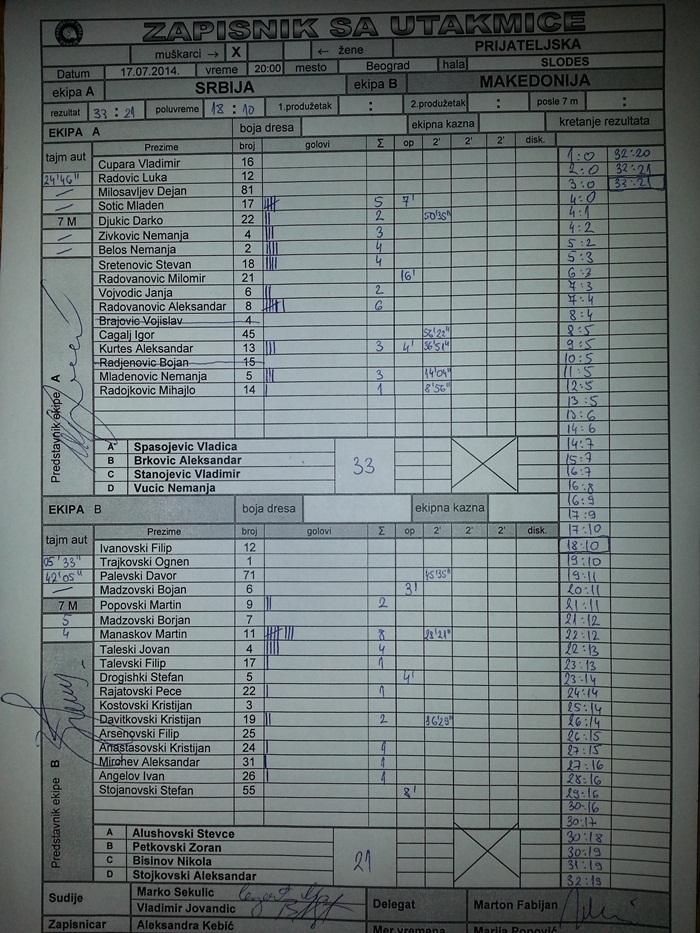 ZAPISNIK SA UTAKMICE
muškarci → X ← žene PRIJATELJSKA
Datum 17.07.2014. vreme 20:00 mesto Beograd hala SLODES
ekipa A SRBIJA ekipa B MAKEDONIJA
rezultat 33 : 21 poluvreme 18 : 10 1.produžetak : 2.produžetak : posle 7 m :
EKIPA A boja dresa ekipna kazna kretanje rezultata
tajm aut Prezime broj golovi Σ op 2' 2' 2' disk.
Cupara Vladimir 16
24'46" Radovic Luka 12
Milosavljev Dejan 81
Sotic Mladen 17 5 7'
7 M Djukic Darko 22 2 50'35"
Zivkovic Nemanja 4 3
Belos Nemanja 2 4
Sretenovic Stevan 18 4
Radovanovic Milomir 21 16'
Vojvodic Janja 6 2
Radovanovic Aleksandar 8 6
Brajovic Vojislav 4
Cagalj Igor 45 56'22"
Kurtes Aleksandar 13 3 4' 36'51"
Radjenovic Bojan 15
Mladenovic Nemanja 5 3 14'04"
Radojkovic Mihajlo 14 1 8'56"
Predstavnik ekipe A
A Spasojevic Vladica
B Brkovic Aleksandar
C Stanojevic Vladimir
D Vucic Nemanja
33
EKIPA B boja dresa ekipna kazna
tajm aut Prezime broj golovi Σ op 2' 2' 2' disk.
Ivanovski Filip 12
05'33" Trajkovski Ognen 1
42'05" Palevski Davor 71 15'35"
Madzovski Bojan 6 3'
7 M Popovski Martin 9 2
5 Madzovski Borjan 7
4 Manaskov Martin 11 8 28'21"
Taleski Jovan 4 4
Talevski Filip 17 1
Drogishki Stefan 5 4'
Rajatovski Pece 22 1
Kostovski Kristijan 3
Davitkovski Kristijan 19 2 16'29"
Arsenovski Filip 25
Anastasovski Kristijan 24 1
Mirohev Aleksandar 31 1
Angelov Ivan 26 1
Stojanovski Stefan 55 8'
Predstavnik ekipe B
A Alushovski Stevce
B Petkovski Zoran
C Bisinov Nikola
D Stojkovski Aleksandar
21
1:0
2:0
3:0
4:0
4:1
4:2
5:2
5:3
6:3
7:3
7:4
8:4
8:5
9:5
10:5
11:5
12:5
13:5
13:6
14:6
14:7
15:7
16:7
16:8
16:9
17:9
17:10
18:10
19:10
19:11
20:11
21:11
21:12
22:12
22:13
23:13
23:14
24:14
25:14
26:14
26:15
27:15
27:16
28:16
29:16
30:16
30:17
30:18
30:19
31:19
32:19
32:20
32:21
33:21
Sudije Marko Sekulic Delegat Marton Fabijan
Vladimir Jovandic
Zapisnicar Aleksandra Kebić Mer.vremena Marija Popović